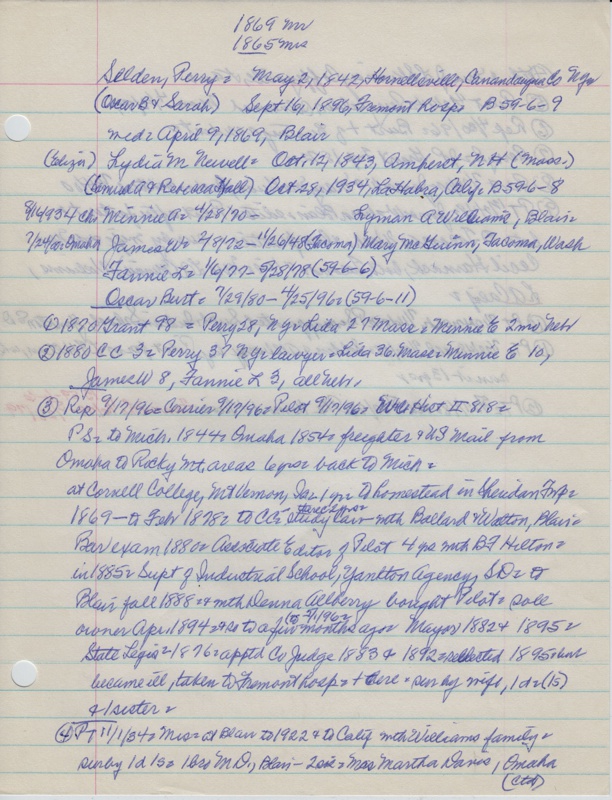 1869 mr
1865 mrs
Selden, Perry = May 2, 1842, Hornellsville, Canandaigua Co N.Y.
(Oscar B & Sarah) Sept 16, 1896, Fremont Hosp = B 59-6-9
med = April 9, 1869, Blair
(Eliza) Lydia M Newell = Oct. 12, 1843, Amherst, N.H (Mass.)
(Rebecca Hall) Oct 28, 1934, LaHabra, Calif = B 59-6-8
Minnie A = 4/28/70 - Lyman A Williams, Blair =
7/24/02 Omaha James W = 2/8/72 - 11/26/48 (Tacoma) Mary McGuinn, Tacoma, Wash
Fannie L = 1/6/77 - 5/28/78 (59-6-6)
Oscar Burt = 7/29/80 - 4/25/96 = (59-6-11)
① 1870 Grant 98 = Perry 28, N.Y = Lida 27 Mass = Minnie E 2mo Nebr
② 1880 CC 3 = Perry 37 N.Y = lawyer = Lida 36 Mass = Minnie E 10,
James W 8, Fannie L 3, all Nebr.
③ Rep 9/17/96 = Courier 9/17/96 = Pilot 9/17/96 = Hist II 818 =
PS = to Mich. 1844 = Omaha 1854 = freighter & US Mail from
Omaha to Rocky Mt. areas 6 yrs = back to Mich =
at Cornell College, Mt Vernon, Ia = 1 yr = to homestead in Sheridan Twp =
1869 - to Febr 1878 = to CC = study law - with Ballard & Walton, Blair =
Bar exam 1880 = Associate Editor of Pilot 4 yrs with B F Hilton =
in 1885 = Supt of Industrial School, Yankton Agency, S.D = to
Blair fall 1888 = & with Denna Allberry bought Pilot = sole
owner April 1894 = & to a few months ago = Mayor 1882 & 1895 =
State Legis = 1876 = apptd Co Judge 1883 & 1892 = elected 1895 = but
became ill, taken to Fremont Hosp = + there = sur by wife, 1d = (1s)
& 1 sister =
④ PT 11/1/34 = Mrs = at Blair to 1922 & to Calif with Williams family =
sur by 1d 1s = 1 bro M.D., Blair - 2 sis = Mrs Martha Davis, Omaha
(ctd)